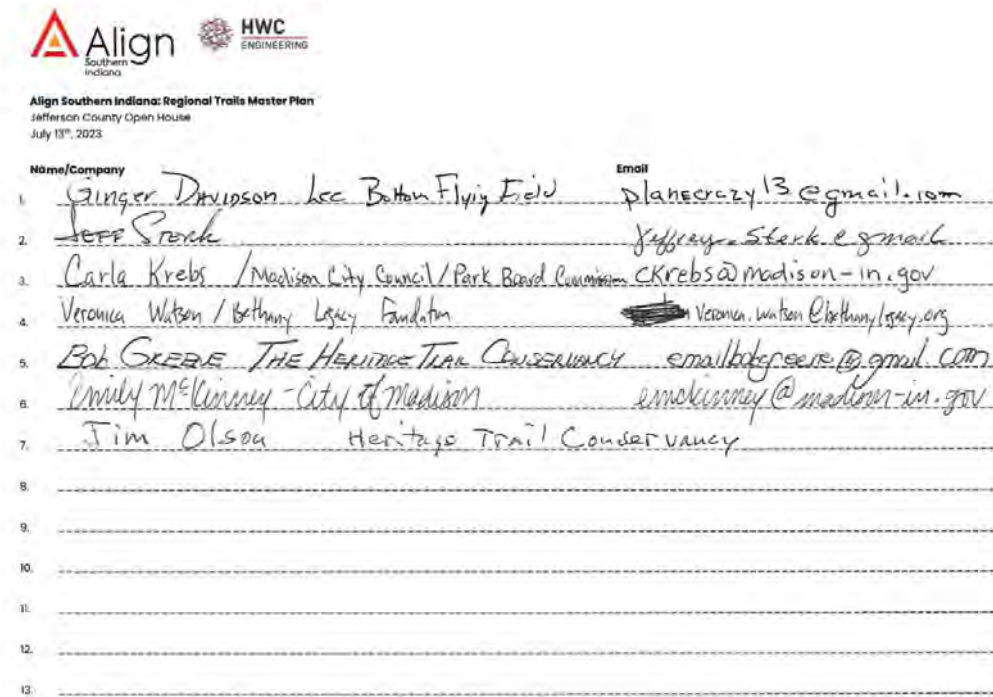 Align
Southern
Indiana
HWC
ENGINEERING
Align Southern Indiana: Regional Trails Master Plan
Jefferson County Open House
July 13th, 2023
Name/Company Email
1. Ginger Davidson Lee Bottom Flying Field planecrazy13@gmail.com
2. Jeff Stork Jeffrey.Stork@gmail
3. Carla Krebs /Madison City Council/Park Board Commission CKrebs@madison-in.gov
4. Veronica Watson / Bethany Legacy Foundation veronica.watson@bethanylegacy.org
5. BOB GREENE THE HERITAGE TRAIL CONSERVANCY emailbobgreene@gmail.com
6. Emily McKinney - City of Madison emckinney@madison-in.gov
7. Jim Olson Heritage Trail Conservancy
8.
9.
10.
11.
12.
13.